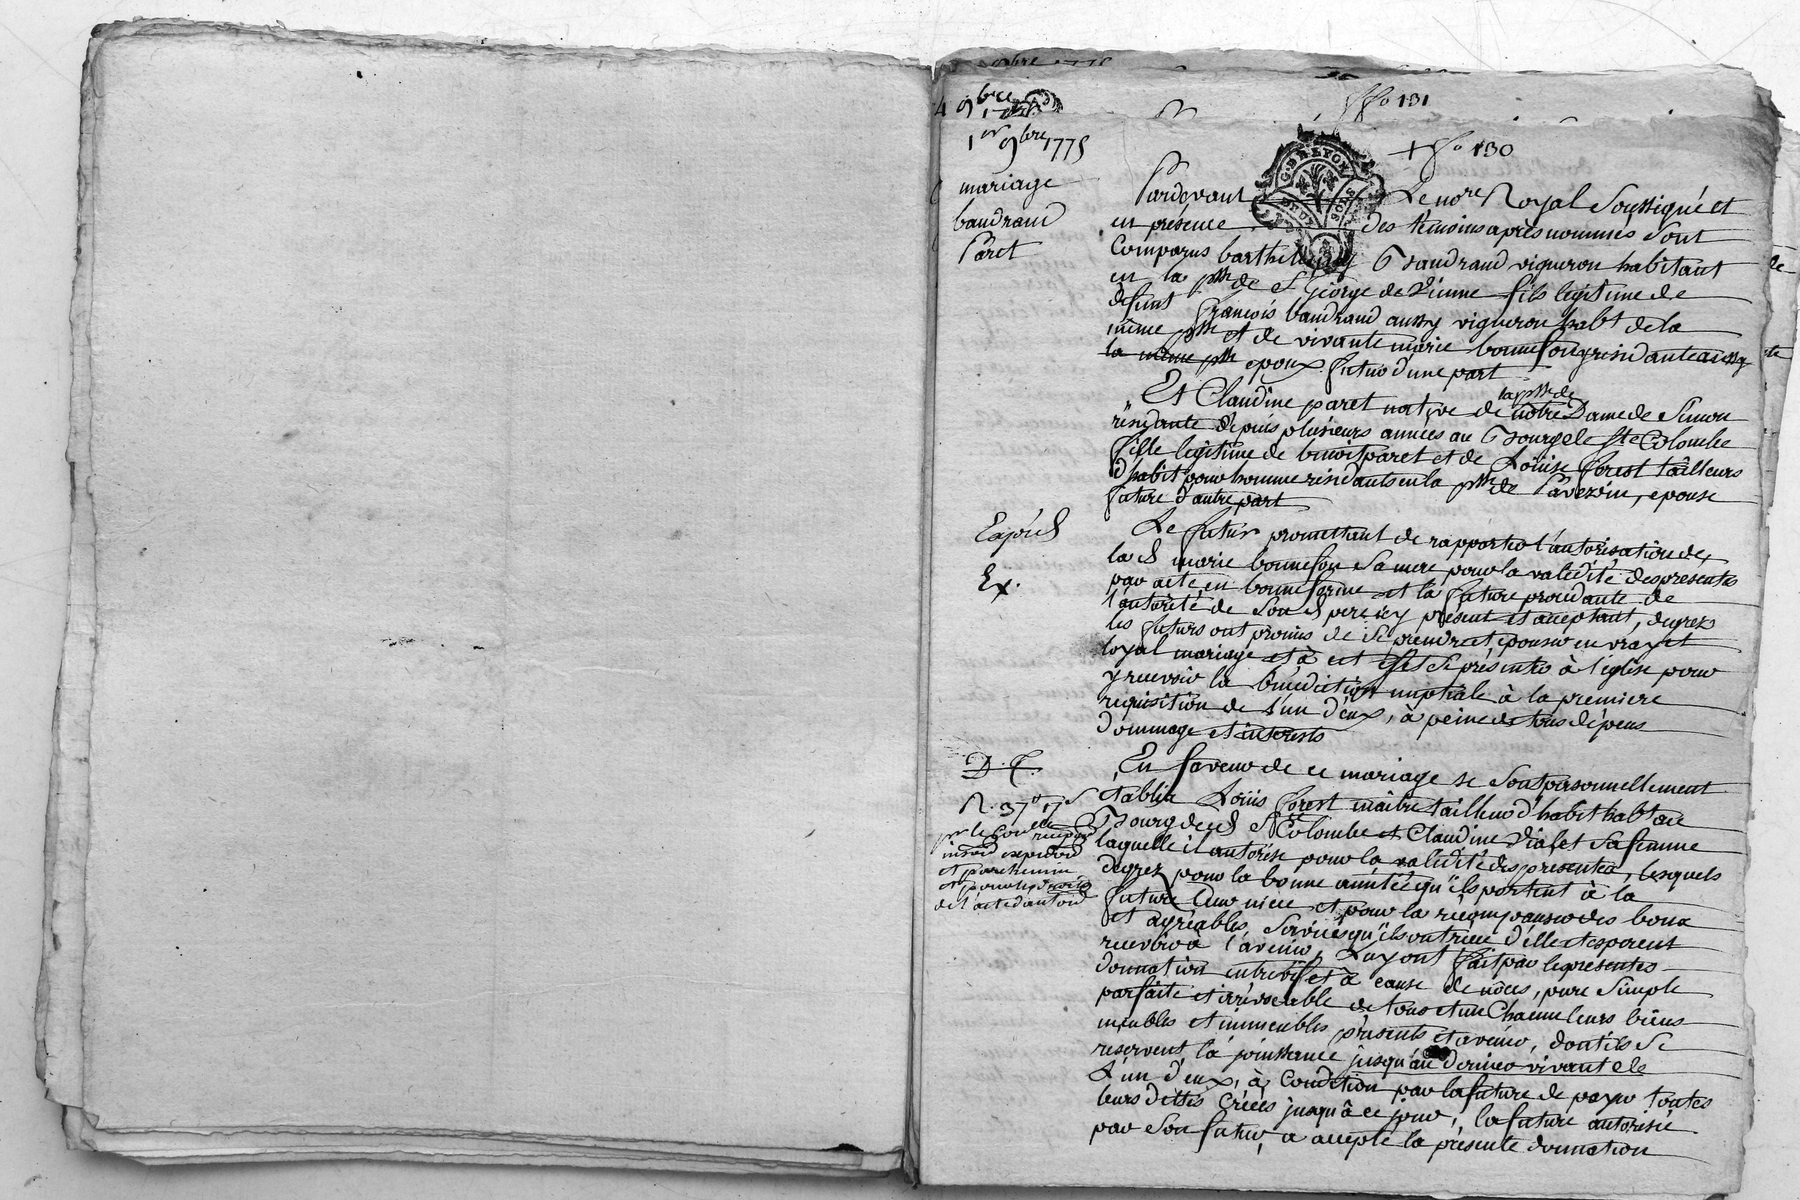 ffo 131
1er 9bre 1775
+ fo 130
mariage
baudrand
Paret
Pardevant Le nore Royal Soussigné et
en présence des temoins après nommés Sont
Comparus barthelemy Baudrand vigneron habitant
en la psse de St George de Vienne fils légitime de
defunt françois baudrand aussy vigneron habt de la
même psse et de vivante marie bonnefon yresidante aussy
la même psse epoux futur d'une part
Et Claudine paret native de la psse de nôtre Dame de Simon
résidante depuis plusieurs années au Bourg de Ste Colombe
fille legitime de benoit paret et de Loüise forest tâilleurs
d'habit pour homme residants en la psse de Pavezin, epouse
future d'autre part
Expéd
Ex.
Le futur promettant de rapporter l'autorisation de
lad marie bonnefon Sa mere pour la validité des presentes
par acte en bonne forme et la future procedante de
l'autorité de Son d pere icy présent et acceptant, degrez
les futurs ont promis de Se prendre et epouser en vray et
loyal mariage et à cet effet Se présenter à l'église pour
y recevoir la bénédiction nuptiale à la premiere
requisition de l'un d'eux, à peine de tous dépens
dommage et interests
D. C.
En faveur de ce mariage se Sont personnellement
établis Loüis forest maître tailleur d'habit habt au
Bourg de d Ste Colombe et Claudine Vialet Sa femme
laquelle il autorise pour la validité des presentes, lesquels
degrez pour la bonne amitié qu'ils portent à la
future leur niece et pour la récompenser des bons
et agréables Services qu'ils ont reçu d'elle et esperent
recevoir à l'avenir, Luy ont fait par les presentes
donnation entre vifs et à cause de nôces, pure Simple
parfaite et irrévocable de tous et un Chacun leurs biens
meubles et immeubles présents et avenir, dont ils Se
reservent la joüissance jusqu'au dernier vivant de
L'un d'eux, à Condition par la future de payer toutes
leurs dettes Créées jusqu'à ce jour, la future autorisée
par Son futur, a accepté la présente donnation
R. 37# 17s